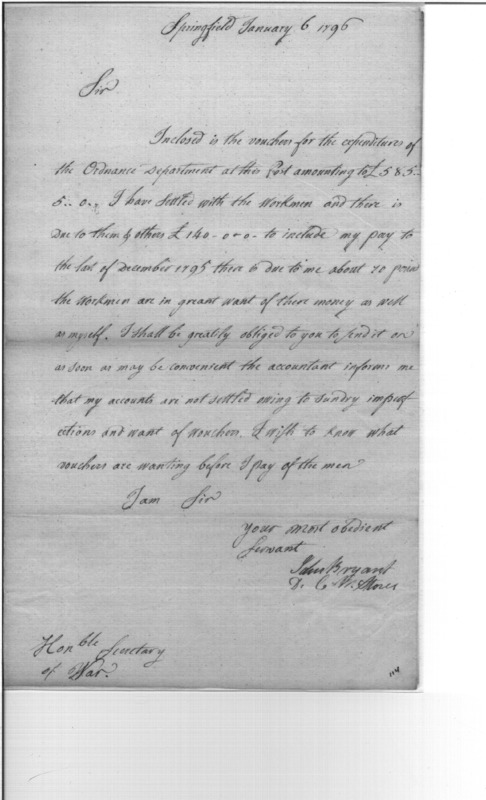 Springfield January 6 1796
Sir
Inclosed is the vouchers for the expenditures of
the Ordnance Department at this Post amounting to £585-
6-0- I have settled with the Workmen and there is
Due to them & others £140-0-0- to include my pay to
the last of December 1795 there is due to me about 70 pound
the Workmen are in greant want of there money as well
as myself. I shall be greatily obliged to you to send it on
as soon as may be convenient the accountant informs me
that my accounts are not settled owing to sundry imperf
ections and want of vouchers. I wish to know what
vouchers are wanting before I pay of the men
I am Sir
Your most obedient
Servant
John Bryant
D. C. M. Stores
Honble Secretary
of War.